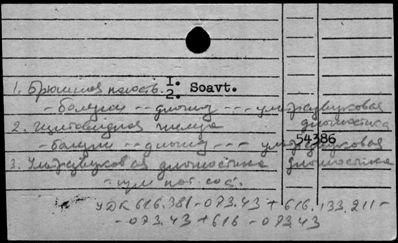 I.
1. Брюшная полость. 2. Soavt.
- болезни - - диагн. - - - ультразвуковая диагностика
2. Щитовидная железа
54386
- болезни - - диагн. - - - ультразвуковая диагностика
3. Ультразвуковая диагностика
УДК 616.381-073.43 + 616.133.211-
- 073.43 + 616 - 073.43